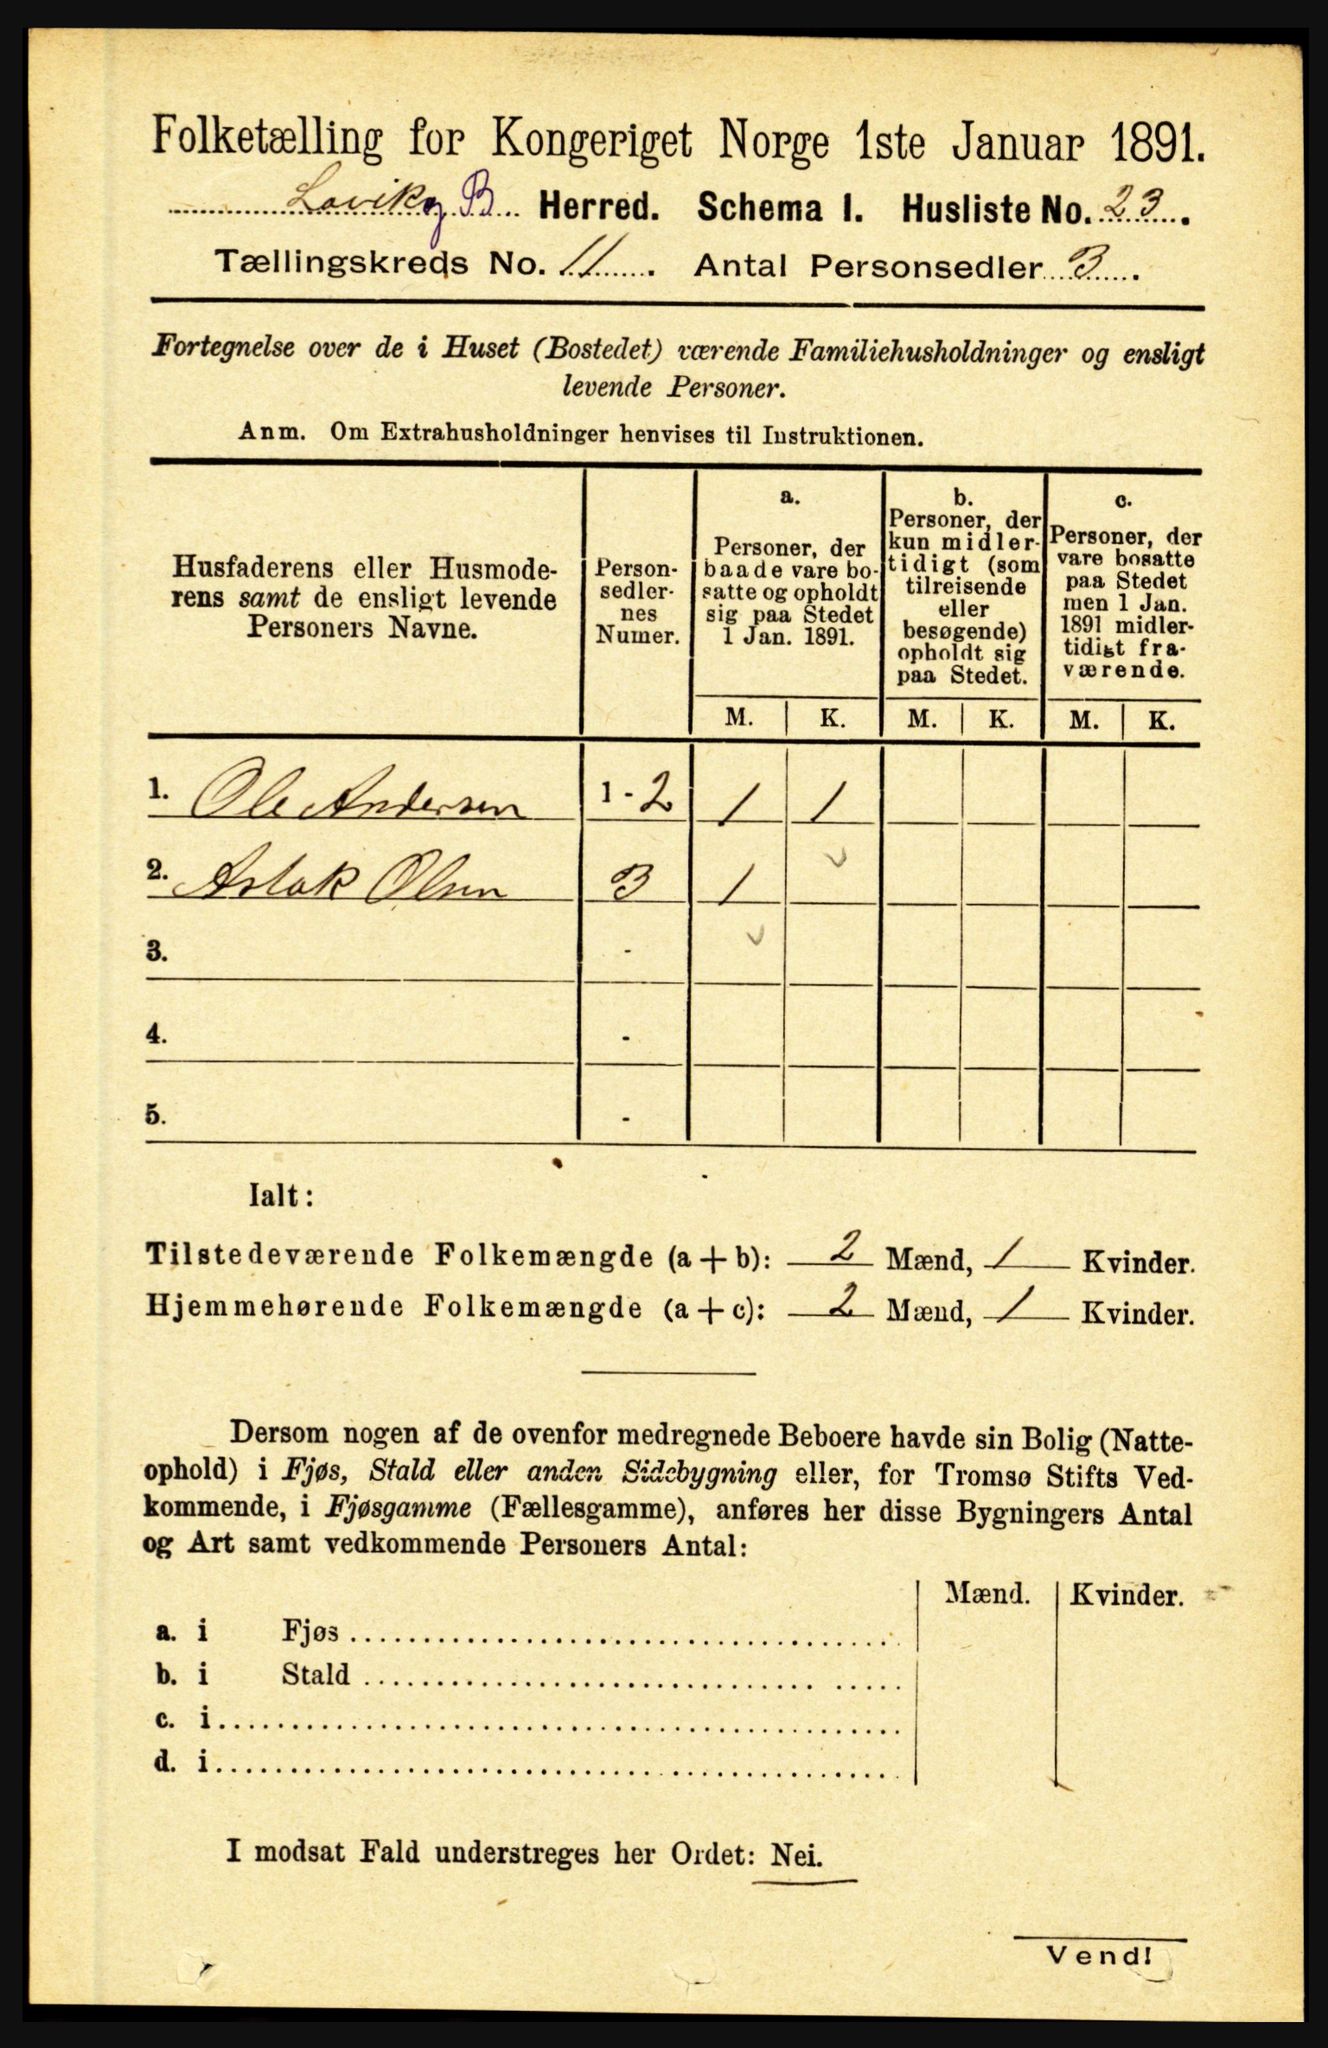 Folketælling for Kongeriget Norge 1ste Januar 1891.
Lavik og B. Herred. Schema I. Husliste No. 23.
Tællingskreds No. 11. Antal Personsedler 3.
Fortegnelse over de i Huset (Bostedet) værende Familiehusholdninger og ensligt
levende Personer.
Anm. Om Extrahusholdninger henvises til Instruktionen.
Husfaderens eller Husmode-
rens samt de ensligt levende
Personers Navne.
Person-
sedler-
nes
Numer.
a.
Personer, der
baade vare bo-
satte og opholdt
sig paa Stedet
1 Jan. 1891.
b.
Personer, der
kun midler-
tidigt (som
tilreisende
eller
besøgende)
opholdt sig
paa Stedet.
c.
Personer, der
vare bosatte
paa Stedet
men 1 Jan.
1891 midler-
tidigt fra-
værende.
M. K. M. K. M. K.
1. Ole Andersen 1-2 1 1
2. Aslak Olsen 3 1
3. -
4. -
5. -
Ialt:
Tilstedeværende Folkemængde (a + b): 2 Mænd, 1 Kvinder.
Hjemmehørende Folkemængde (a + c): 2 Mænd, 1 Kvinder.
Dersom nogen af de ovenfor medregnede Beboere havde sin Bolig (Natte-
ophold) i Fjøs, Stald eller anden Sidebygning eller, for Tromsø Stifts Ved-
kommende, i Fjøsgamme (Fællesgamme), anføres her disse Bygningers Antal
og Art samt vedkommende Personers Antal:
Mænd. Kvinder.
a. i Fjøs
b. i Stald
c. i
d. i
I modsat Fald understreges her Ordet: Nei.
Vend!